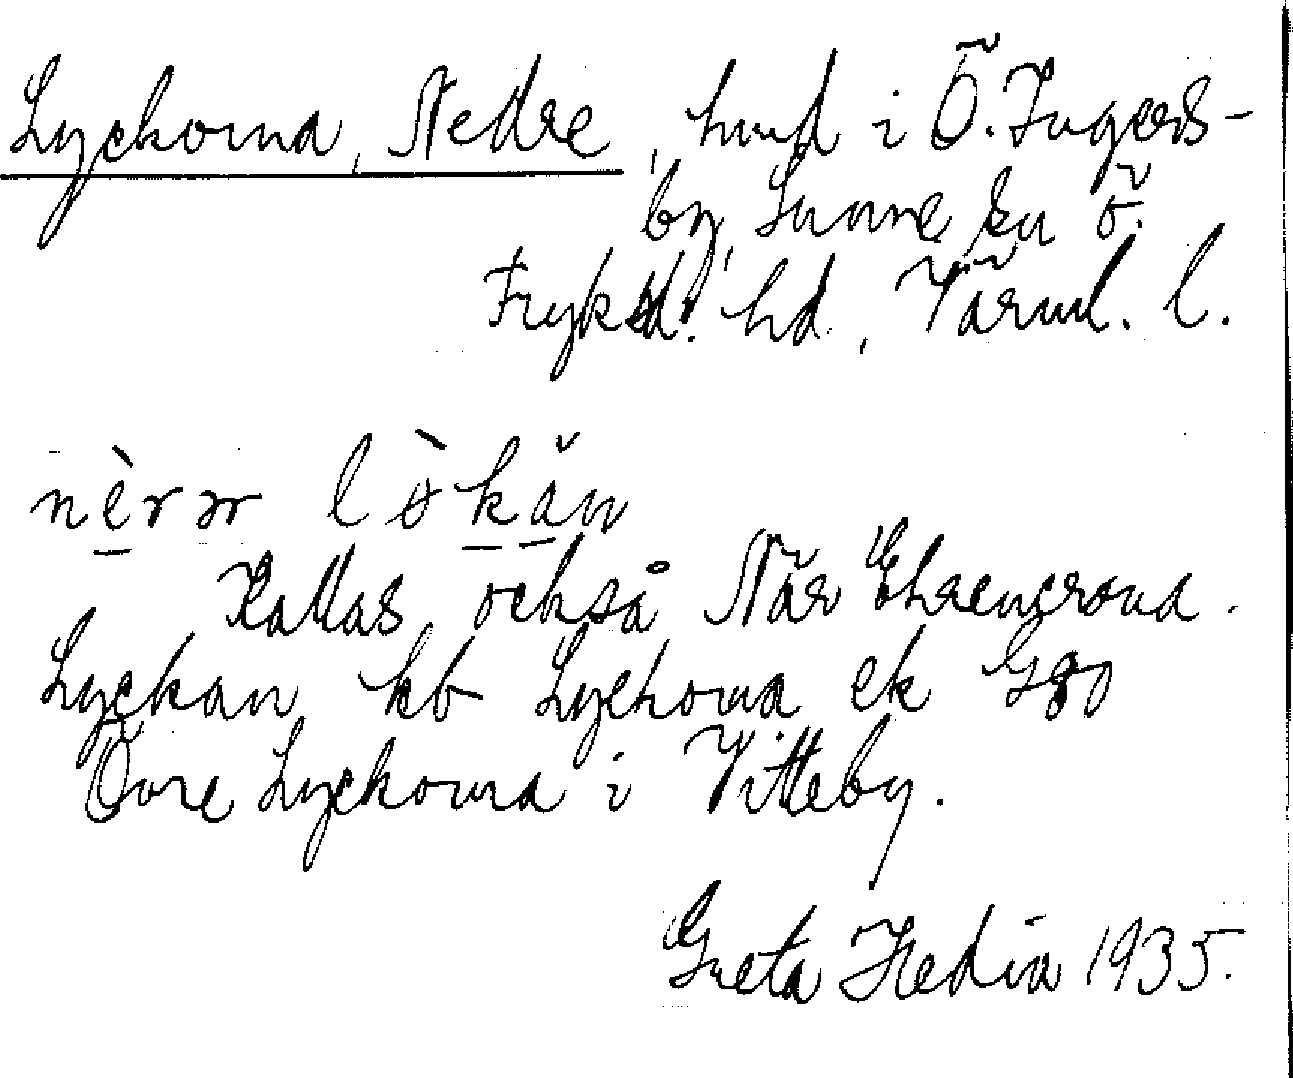 Lyckorna, Nedre, hmd i Ö. Ingers-
by, Sunne sn Ö.
Fryksd. hd, Värml. l.
nèrər lòkăn
Kallas också När Ehrencrona.
Lyckan kb Lyckorna ek Ggo
Övre Lyckorna i Vitteby.
Greta Hedin 1935.